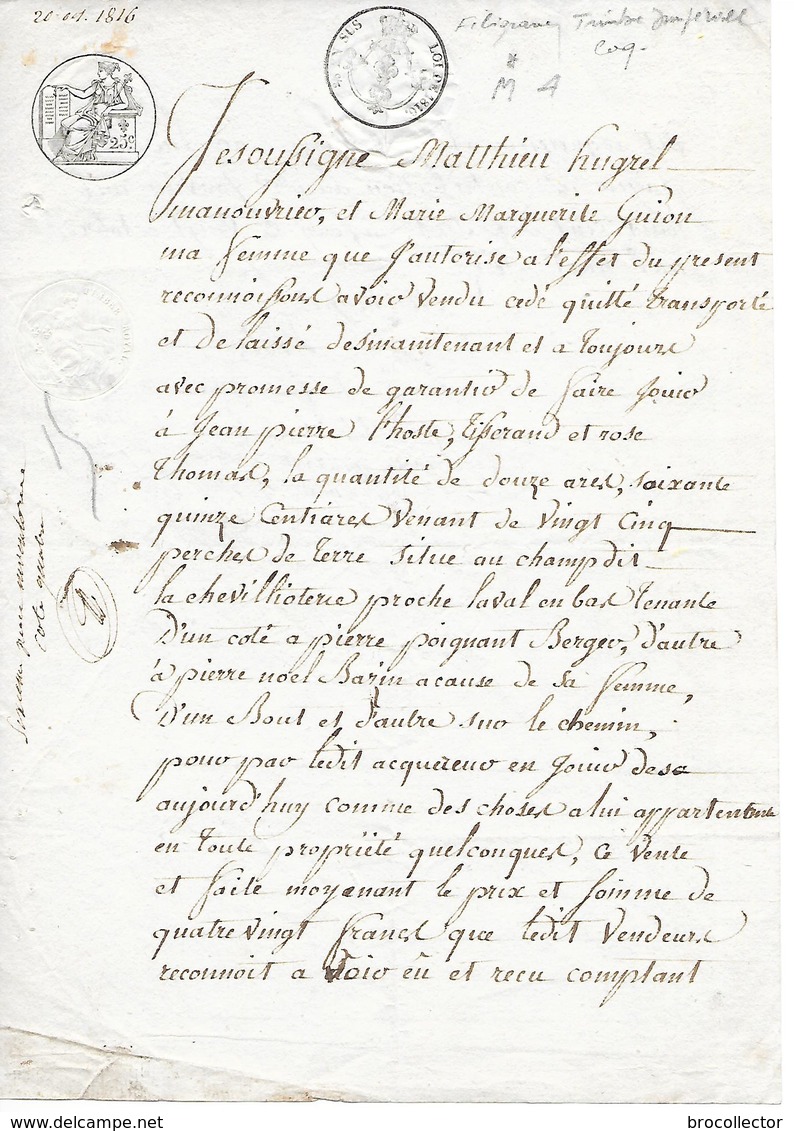 20 oct. 1816
Filigrane Timbre Impérial
Coq
M 4
25c
LOI DE 1816
Jesoussigne Matthieu hugrel
manouvrier, et Marie Marguerite Guion
ma femme que J'autorise a l'effet du present
reconnoissons avoir vendu cédé quitté transporté
et delaissé desmaintenant et a toujours
avec promesse de garantir de faire Jouir
à Jean pierre l'hoste, Tisserand et rose
Thomas, la quantité de douze ares, soixante
quinze Centiares venant de vingt cinq
perches de terre situe au champ dit
la chevillioterie proche laval en bas tenante
D'un coté a pierre poignant Berger, d'autre
à pierre noel Bazin acause de sa femme,
D'un Bout et d'autre sur le chemin,
pour par ledit acquereur en Jouir des
aujourd'huy comme des choses a lui appartenante
en toute propriété quelconques, ce vente
et faite moyenant le prix et somme de
quatre vingt francs que ledit vendeurs
reconnoit a voir eû et recu comptant
cote quatre
brocollector